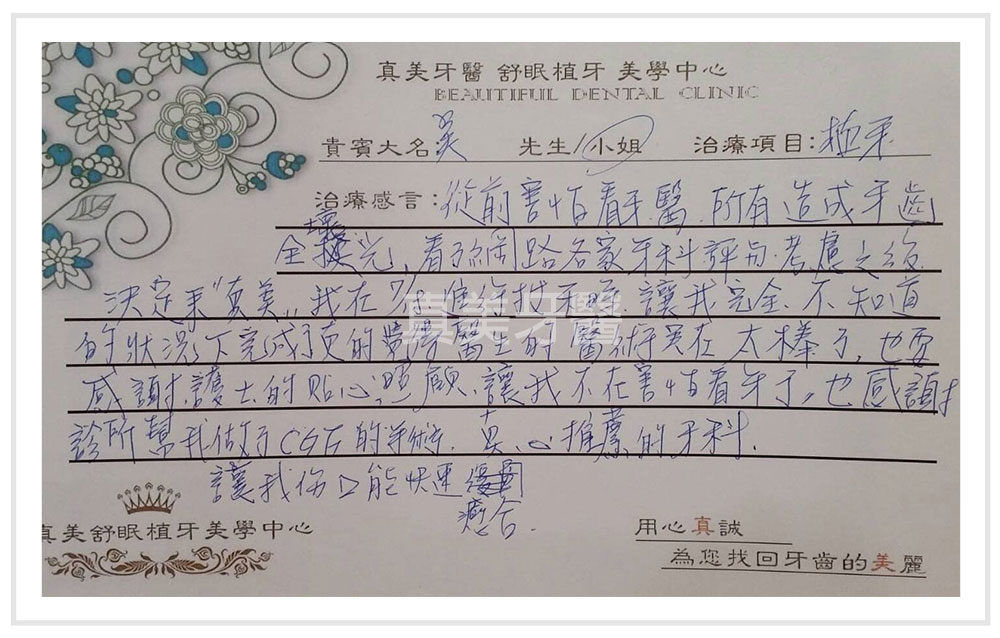 真美牙醫 舒眠植牙 美學中心
BEAUTIFUL DENTAL CLINIC
貴賓大名:吳 先生/小姐 治療項目:植牙
治療感言:從前害怕看牙醫 所有造成牙齒
全壞光,看了網路各家牙科評句.考慮之後
決定來"真美",我在 讓我完全.不知道
的狀況下完成了真的 醫生的醫術實在太棒了,也要
感謝護士的貼心照顧,讓我不在害怕看牙了,也感謝
診所幫我做了CGF的手術.真心推薦的牙科.
讓我傷口能快速
癒合.
真美牙醫
真美舒眠植牙美學中心
用心真誠
為您找回牙齒的美麗